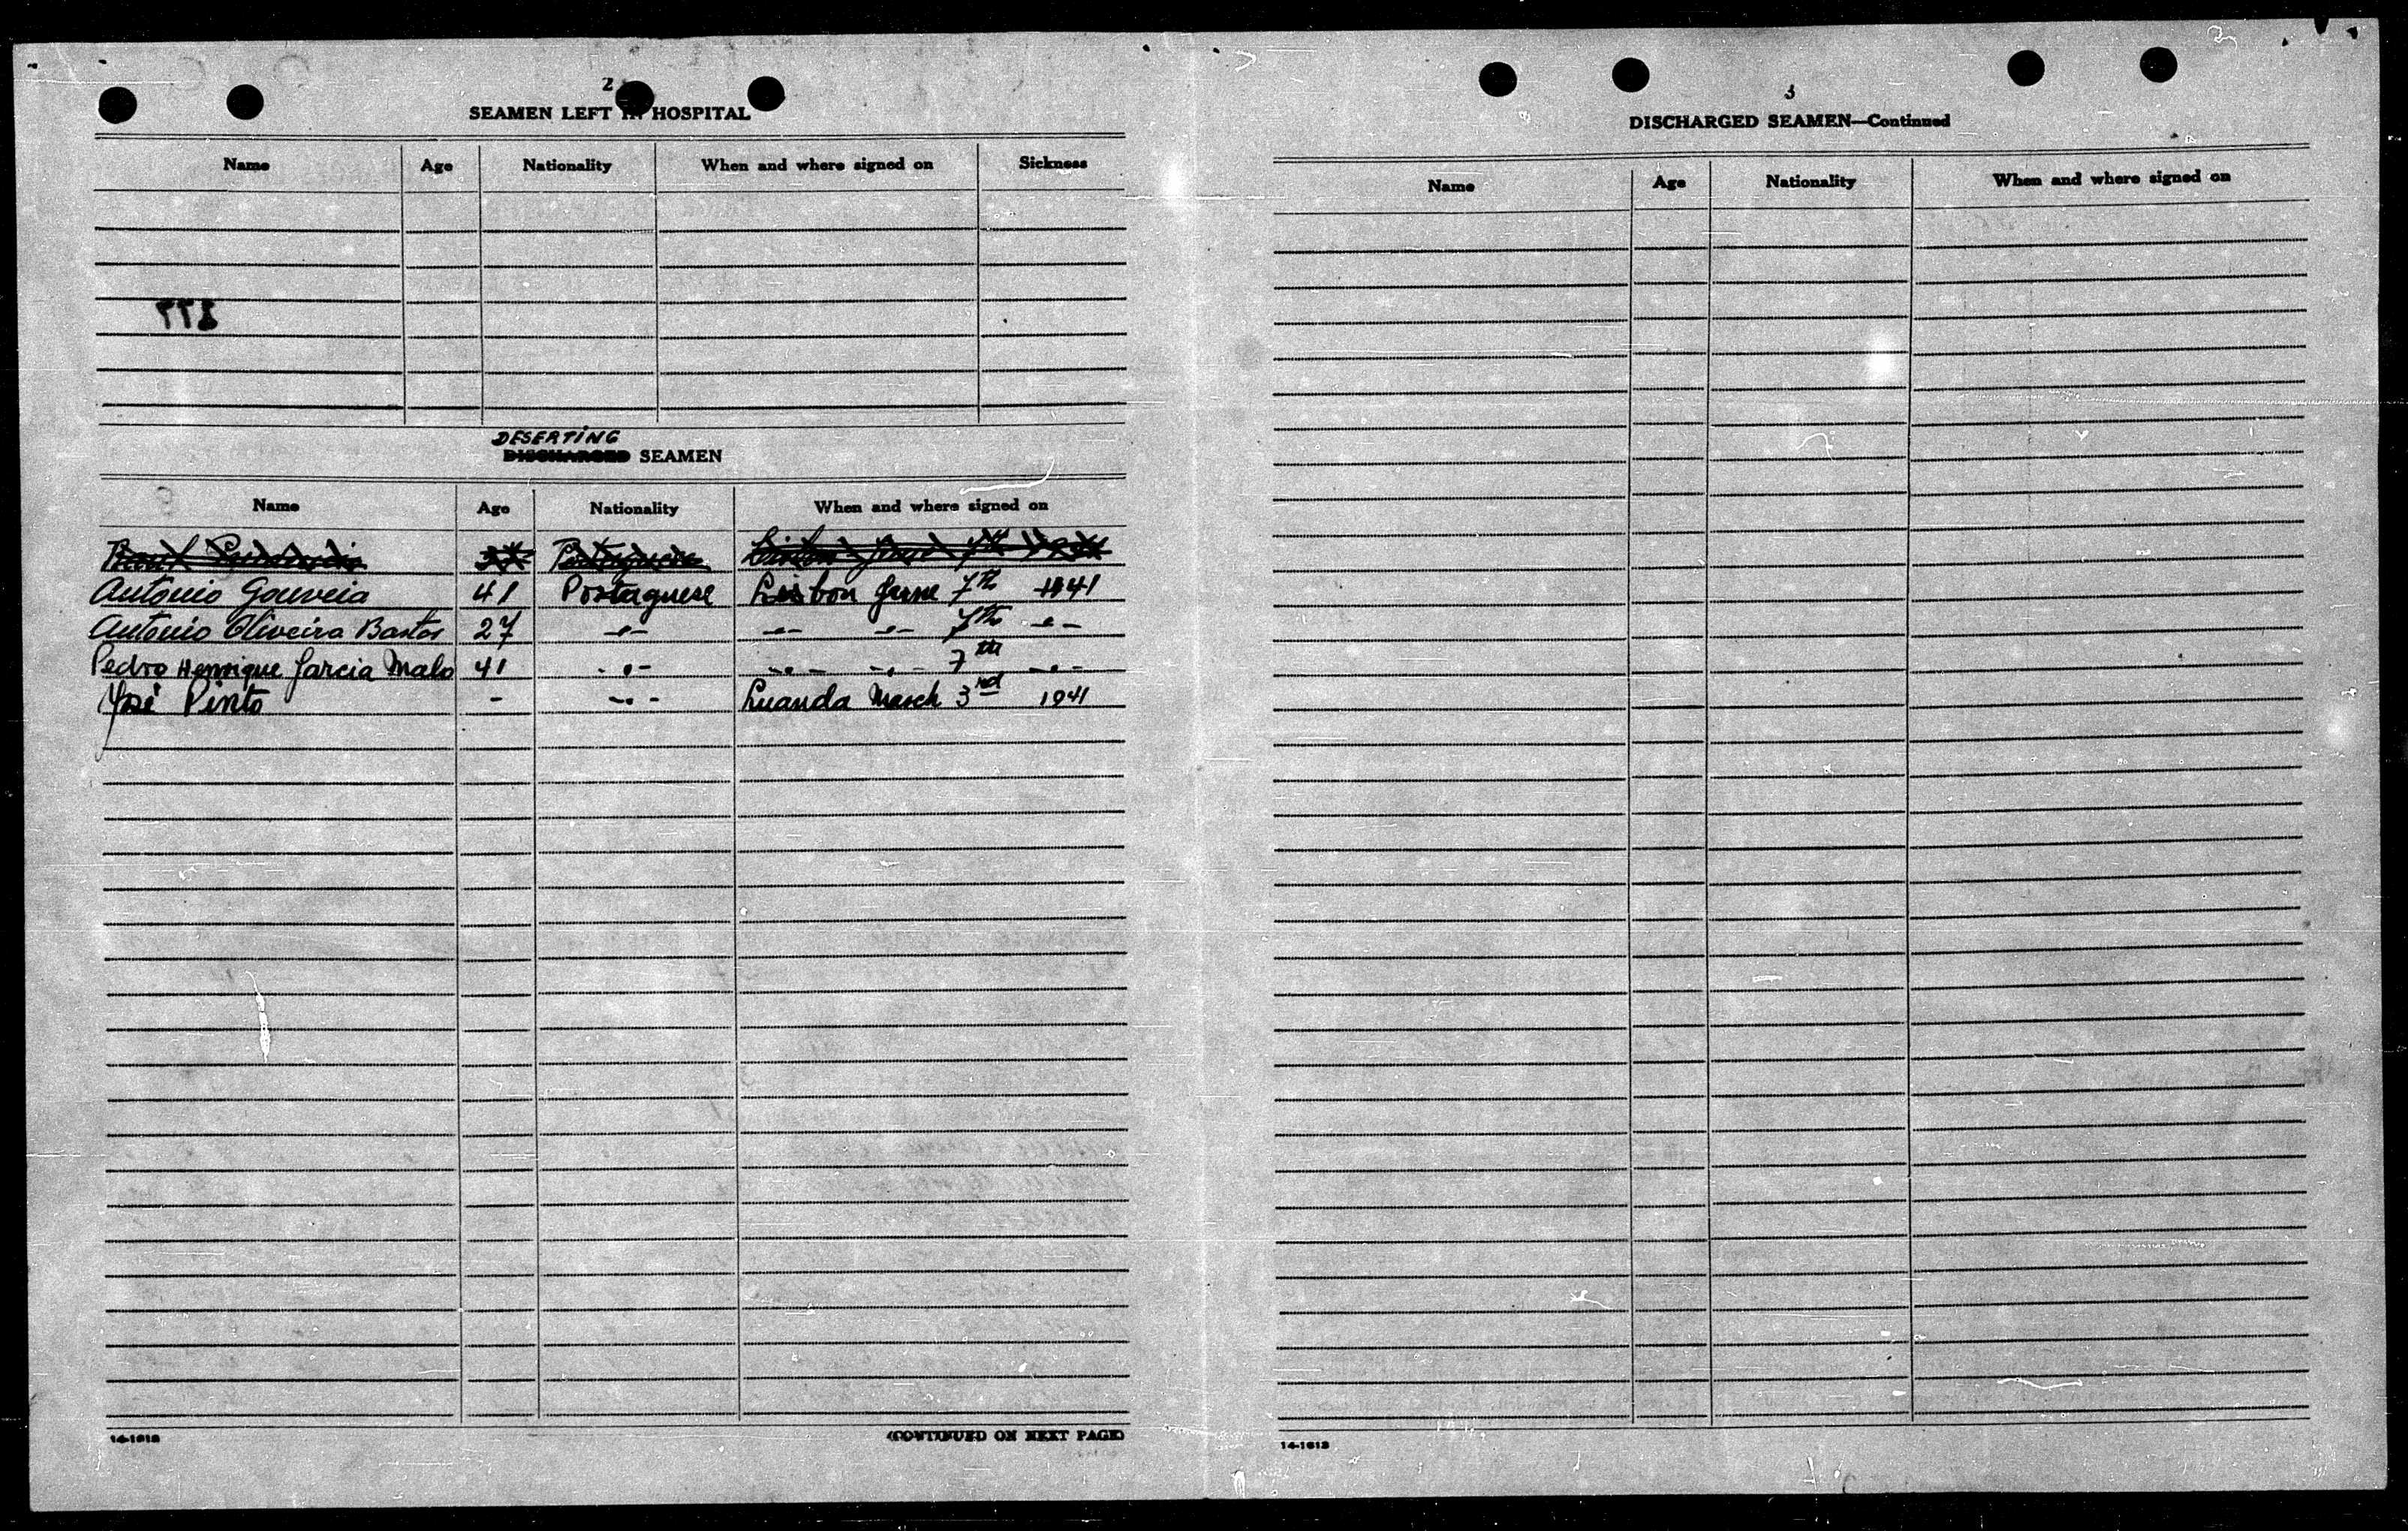 2
SEAMEN LEFT IN HOSPITAL
Name Age Nationality When and where signed on Sickness
DESERTING
DISCHARGED SEAMEN
Name Age Nationality When and where signed on
Portuguese Lisbon June 7th
Antonio Gouveia 41 Portuguese Lisbon June 7th 1941
Antonio Oliveira Bastos 27 -"- -"- -"- 7th -"-
Pedro Henrique Garcia Malo 41 -"- -"- -"- 7th -"-
José Pinto - -"- Luanda March 3rd 1941
14-1613
(CONTINUED ON NEXT PAGE)
3
DISCHARGED SEAMEN—Continued
Name Age Nationality When and where signed on
14-1613